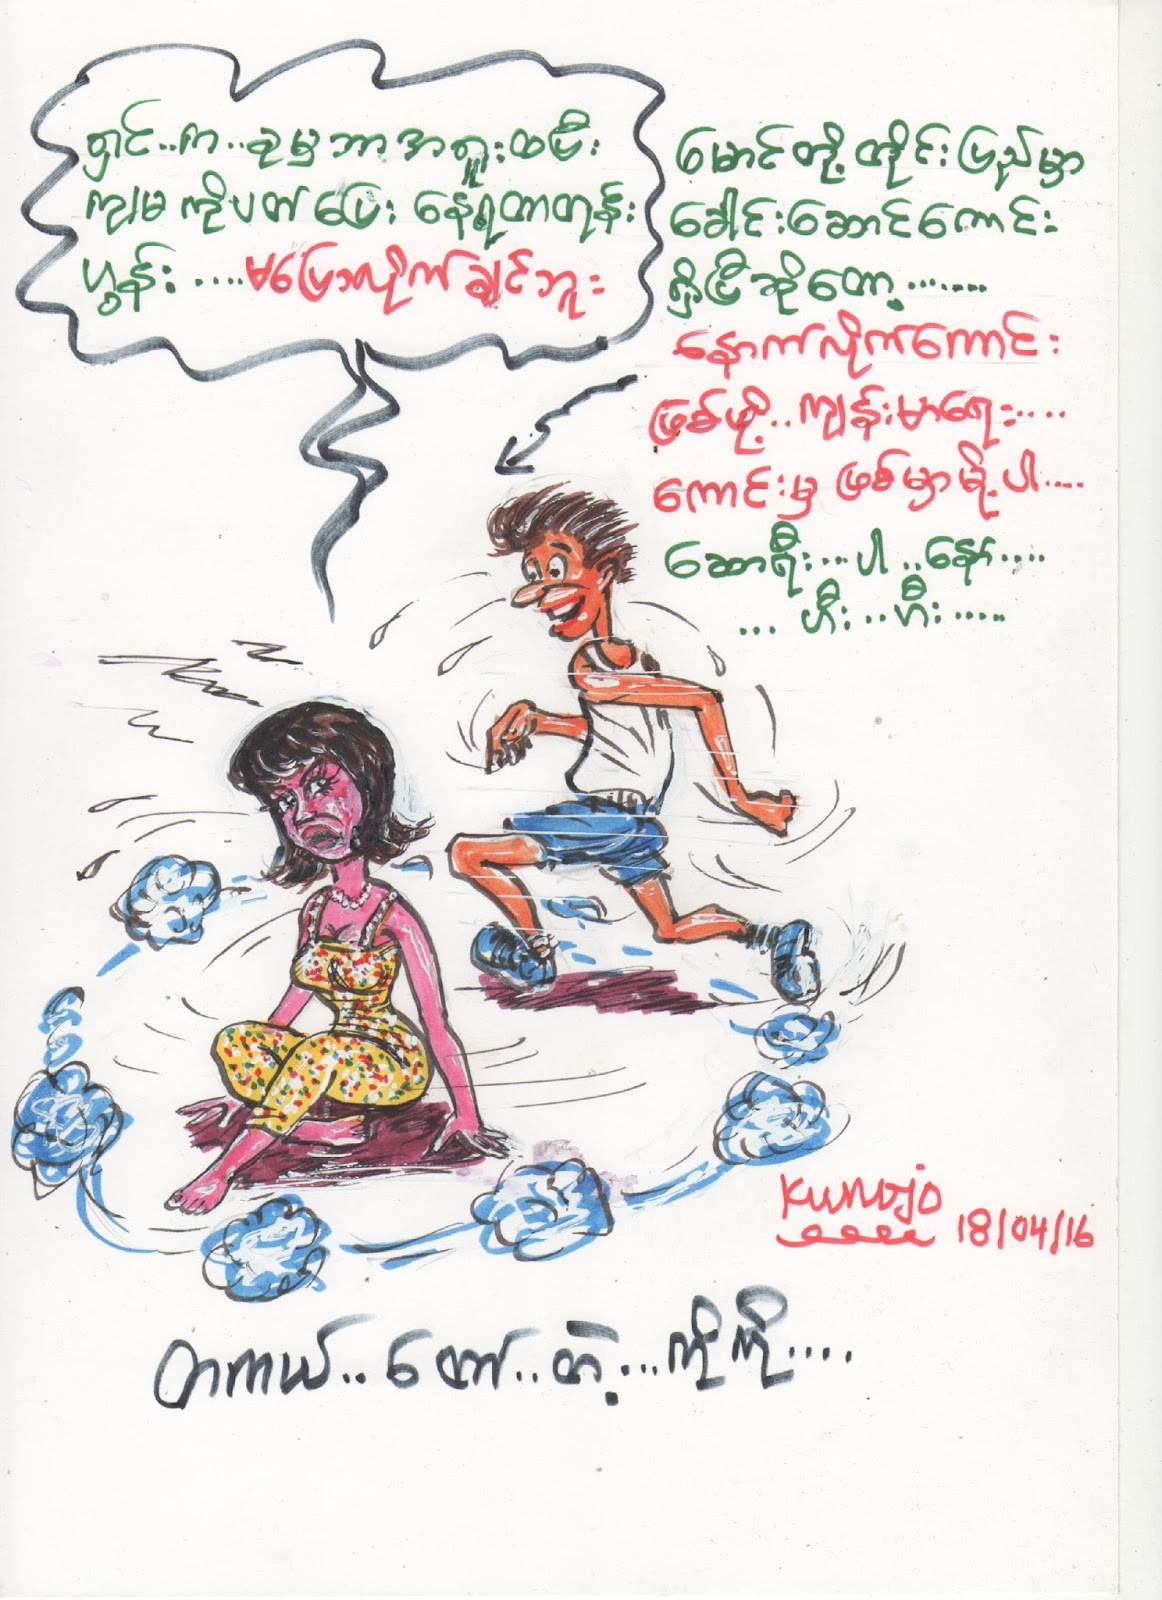 ရှင်..က..ခုမှ ဘာအရူးထပြီး
ကျမ ကိုပတ်ပြေး နေရတာတုန်း
ဟွန်း ....မပြောလိုက်ချင်ဘူး
မောင်တို့ တိုင်းပြည်မှာ
ခေါင်းဆောင်ကောင်း
ရှိပြီဆိုတော့.......
နောက်လိုက်ကောင်း
ဖြစ်ဖို့..ကျန်းမာရေး....
ကောင်းမှ ဖြစ်မှာမို့ပါ....
ဆောရီး...ပါ..နော်....
... ဟီး..ဟီး.....
KUNOJO
18/04/16
တကယ်..တော်..တဲ့...ကိုကို....